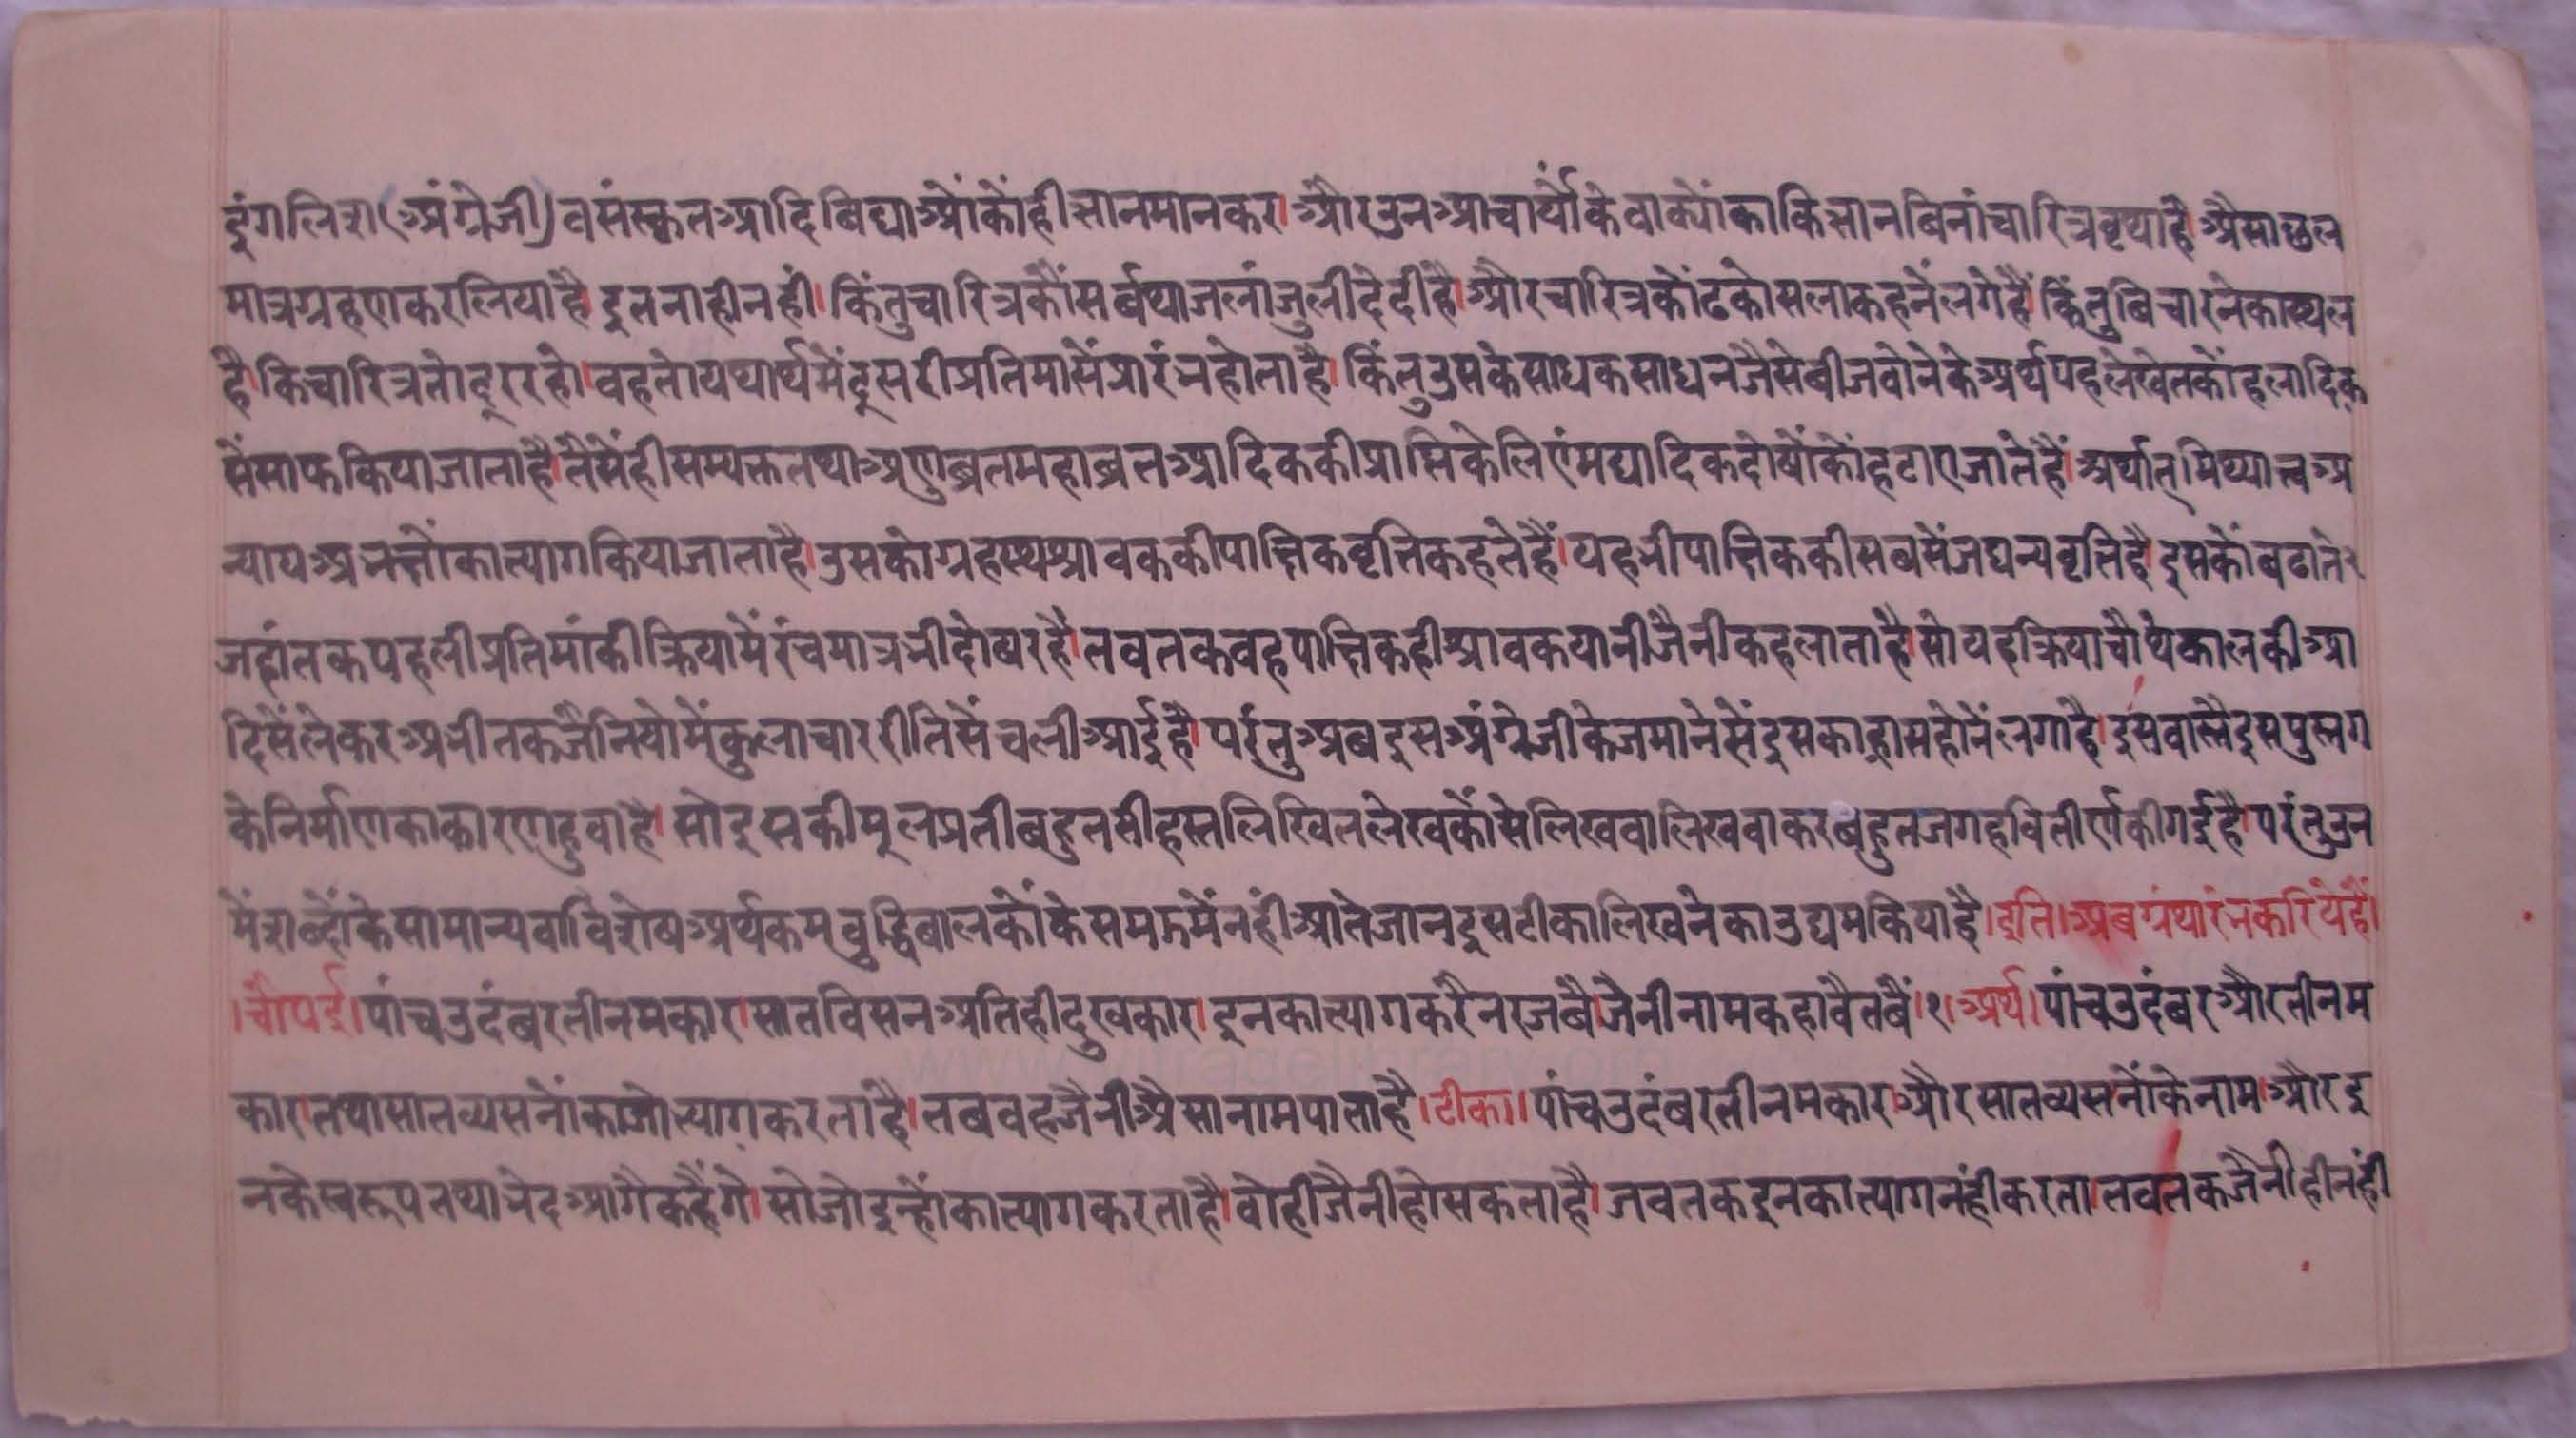 इंगलिश(अंग्रेजी)वसंस्कृतआदिबिद्याओंकोंहीज्ञानमानकर।औरउनआचार्योंकेवाक्योंकाकिज्ञानबिनांचारित्रवृथाहै।अैसाछल
मात्रग्रहणकरलियाहै।इतनाहीनहीं।किंतुचारित्रकौंसर्बथाजलांजुलीदेदीहै।औरचारित्रकोंढकोसलाकहनेंलगेहैं।किंतुबिचारनेकास्थल
है।किचारित्रतोदूररहो।वहतोयथार्थमेंदूसरीप्रतिमासेंप्रारंभहोताहै।किंतुउसकेसाधकसाधनजैसेबीजवोनेकेअर्थपहलेखेतकोंहलादिक
सेंसाफकियाजाताहै।तैसेंहीसम्यक्ततथाअणुब्रतमहाब्रतआदिककीप्राप्तिकेलिएंमद्यादिकदोषोंकोंहटाएजातेहैं।अर्थात्मिथ्यात्वअ
न्यायअभक्षोंकात्यागकियाजाताहै।उसकोग्रहस्थश्रावककीपाक्षिकवृत्तिकहतेहैं।यहभीपाक्षिककीसबसेंजघन्यवृत्तिहै।इसकोंबढाते२
जहांतकपहलीप्रतिमांकीक्रियामेंरंचमात्रभीदोष्यरहै।तवतकवहपाक्षिकहीश्रावकयानीजैनीकहलाताहै।सोयहक्रियाचौथेकालकीआ
दिसेंलेकरअभीतकजैनियोमेंकुलाचाररीतिसेंचलीआईहै।परंतुअबइसअंग्रेजीकेजमानेसेंइसकाह्रासहोनेंलगाहै।इसवास्तैइसपुस्तग
केनिर्माणकाकारणहुवाहै।सोइसकीमूलप्रतीबहुतसीहस्तलिखितलेखकोंसेलिखवालिखवाकरबहुतजगहवितीर्णकीगईहै।परंतुउन
मेंशब्दोंकेसामान्यवाविशेषअर्थकमवुद्धिबालकोंकेसमझमेंनहींआतेजानइसटीकालिखनेकाउद्यमकियाहै।इति।अबग्रंथारंभकरियेहैं।
।चौपई।पांचउदंबरतीनमकार।सातविसनअतिहीदुखकार।इनकात्यागकरैनरजबै।जैनीनामकहावैतबैं।१।अर्थ।पांचउदंबरऔरतीनम
कार।तथासातव्यसनोंकाजोत्यागकरताहै।तबवहजैनीअैसानामपाताहै।टीका।पांचउदंबरतीनमकार।औरसातव्यसनोंकेनाम।औरइ
नकेस्वरूपतथाभेदआगैकहैंगे।सोजोइन्होंकात्यागकरताहै।वोहीजैनीहोसकताहै।जवतकइनकात्यागनहींकरता।तवतकजैनीहीनहीं